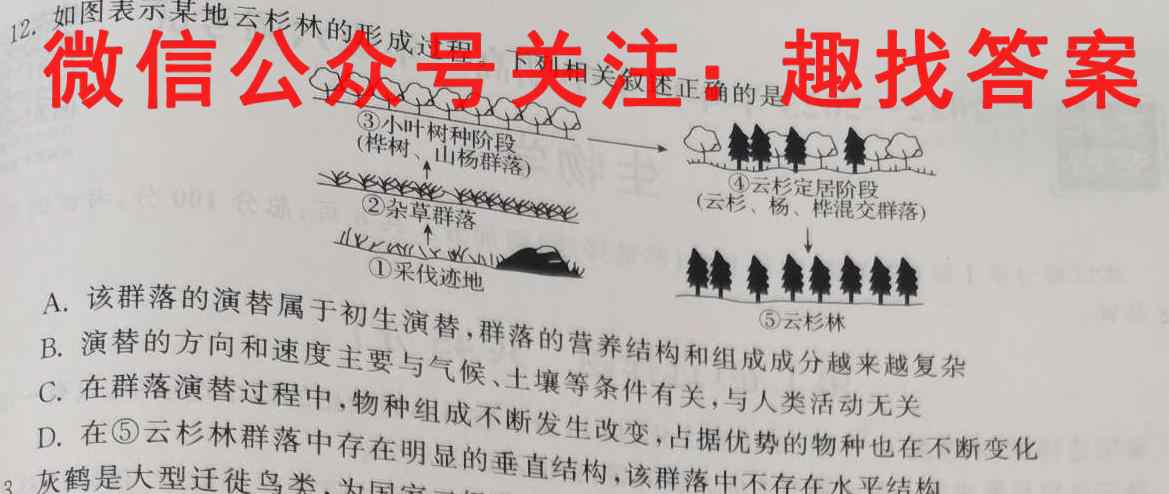 12. 如图表示某地云杉林的形成过程。下列相关叙述正确的是
微信公众号关注：趣找答案
③小叶树种阶段
(桦树、山杨群落)
④云杉定居阶段
(云杉、杨、桦混交群落)
②杂草群落
①采伐迹地
⑤云杉林
A. 该群落的演替属于初生演替，群落的营养结构和组成成分越来越复杂
B. 演替的方向和速度主要与气候、土壤等条件有关，与人类活动无关
C. 在群落演替过程中，物种组成不断发生改变，占据优势的物种也在不断变化
D. 在⑤云杉林群落中存在明显的垂直结构，该群落中不存在水平结构
3 灰鹤是大型迁徙鸟类，为国家二